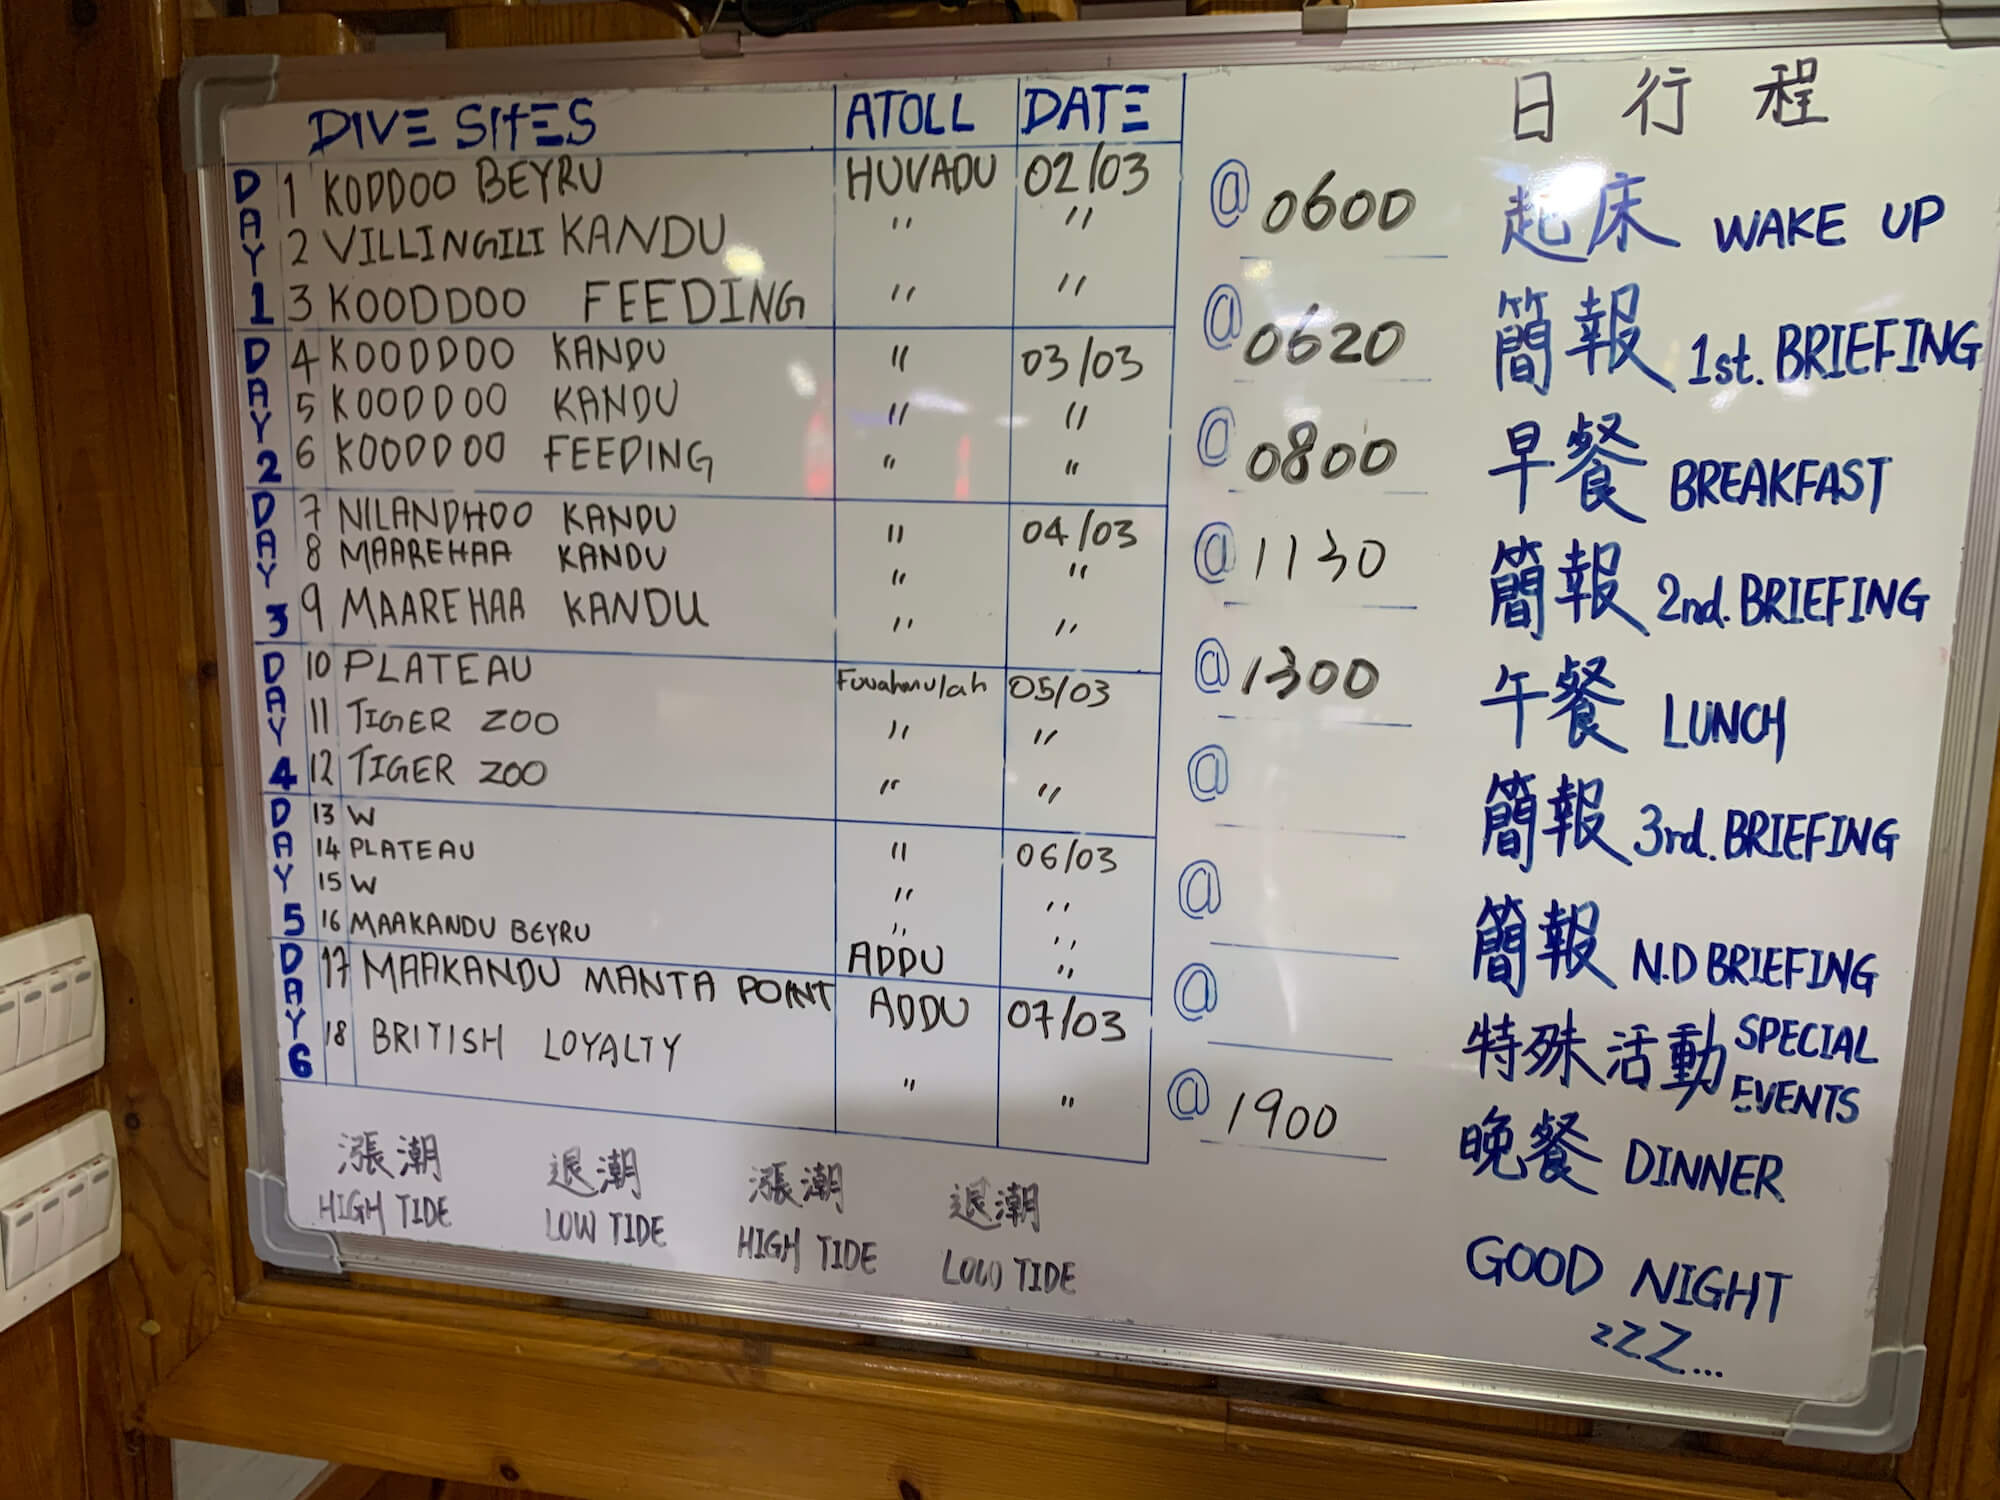 DIVE SITES ATOLL DATE
DAY 1
1 KODDOO BEYRU HUVADU 02/03
2 VILLINGILI KANDU " "
3 KOODDOO FEEDING " "
DAY 2
4 KOODDOO KANDU " 03/03
5 KOODDOO KANDU " "
6 KOODDOO FEEDING " "
DAY 3
7 NILANDHOO KANDU " 04/03
8 MAAREHAA KANDU " "
9 MAAREHAA KANDU " "
DAY 4
10 PLATEAU Fuvahmulah 05/03
11 TIGER ZOO " "
12 TIGER ZOO " "
DAY 5
13 W " 06/03
14 PLATEAU " "
15 W " "
16 MAAKANDU BEYRU ADDU "
DAY 6
17 MAAKANDU MANTA POINT ADDU 07/03
18 BRITISH LOYALTY " "
漲潮 退潮 漲潮 退潮
HIGH TIDE LOW TIDE HIGH TIDE LOW TIDE
日行程
@ 0600 起床 WAKE UP
@ 0620 簡報 1st. BRIEFING
@ 0800 早餐 BREAKFAST
@ 1130 簡報 2nd. BRIEFING
@ 1300 午餐 LUNCH
@ 簡報 3rd. BRIEFING
@ 簡報 N.D BRIEFING
@ 特殊活動 SPECIAL EVENTS
@ 1900 晚餐 DINNER
GOOD NIGHT
zZZ...